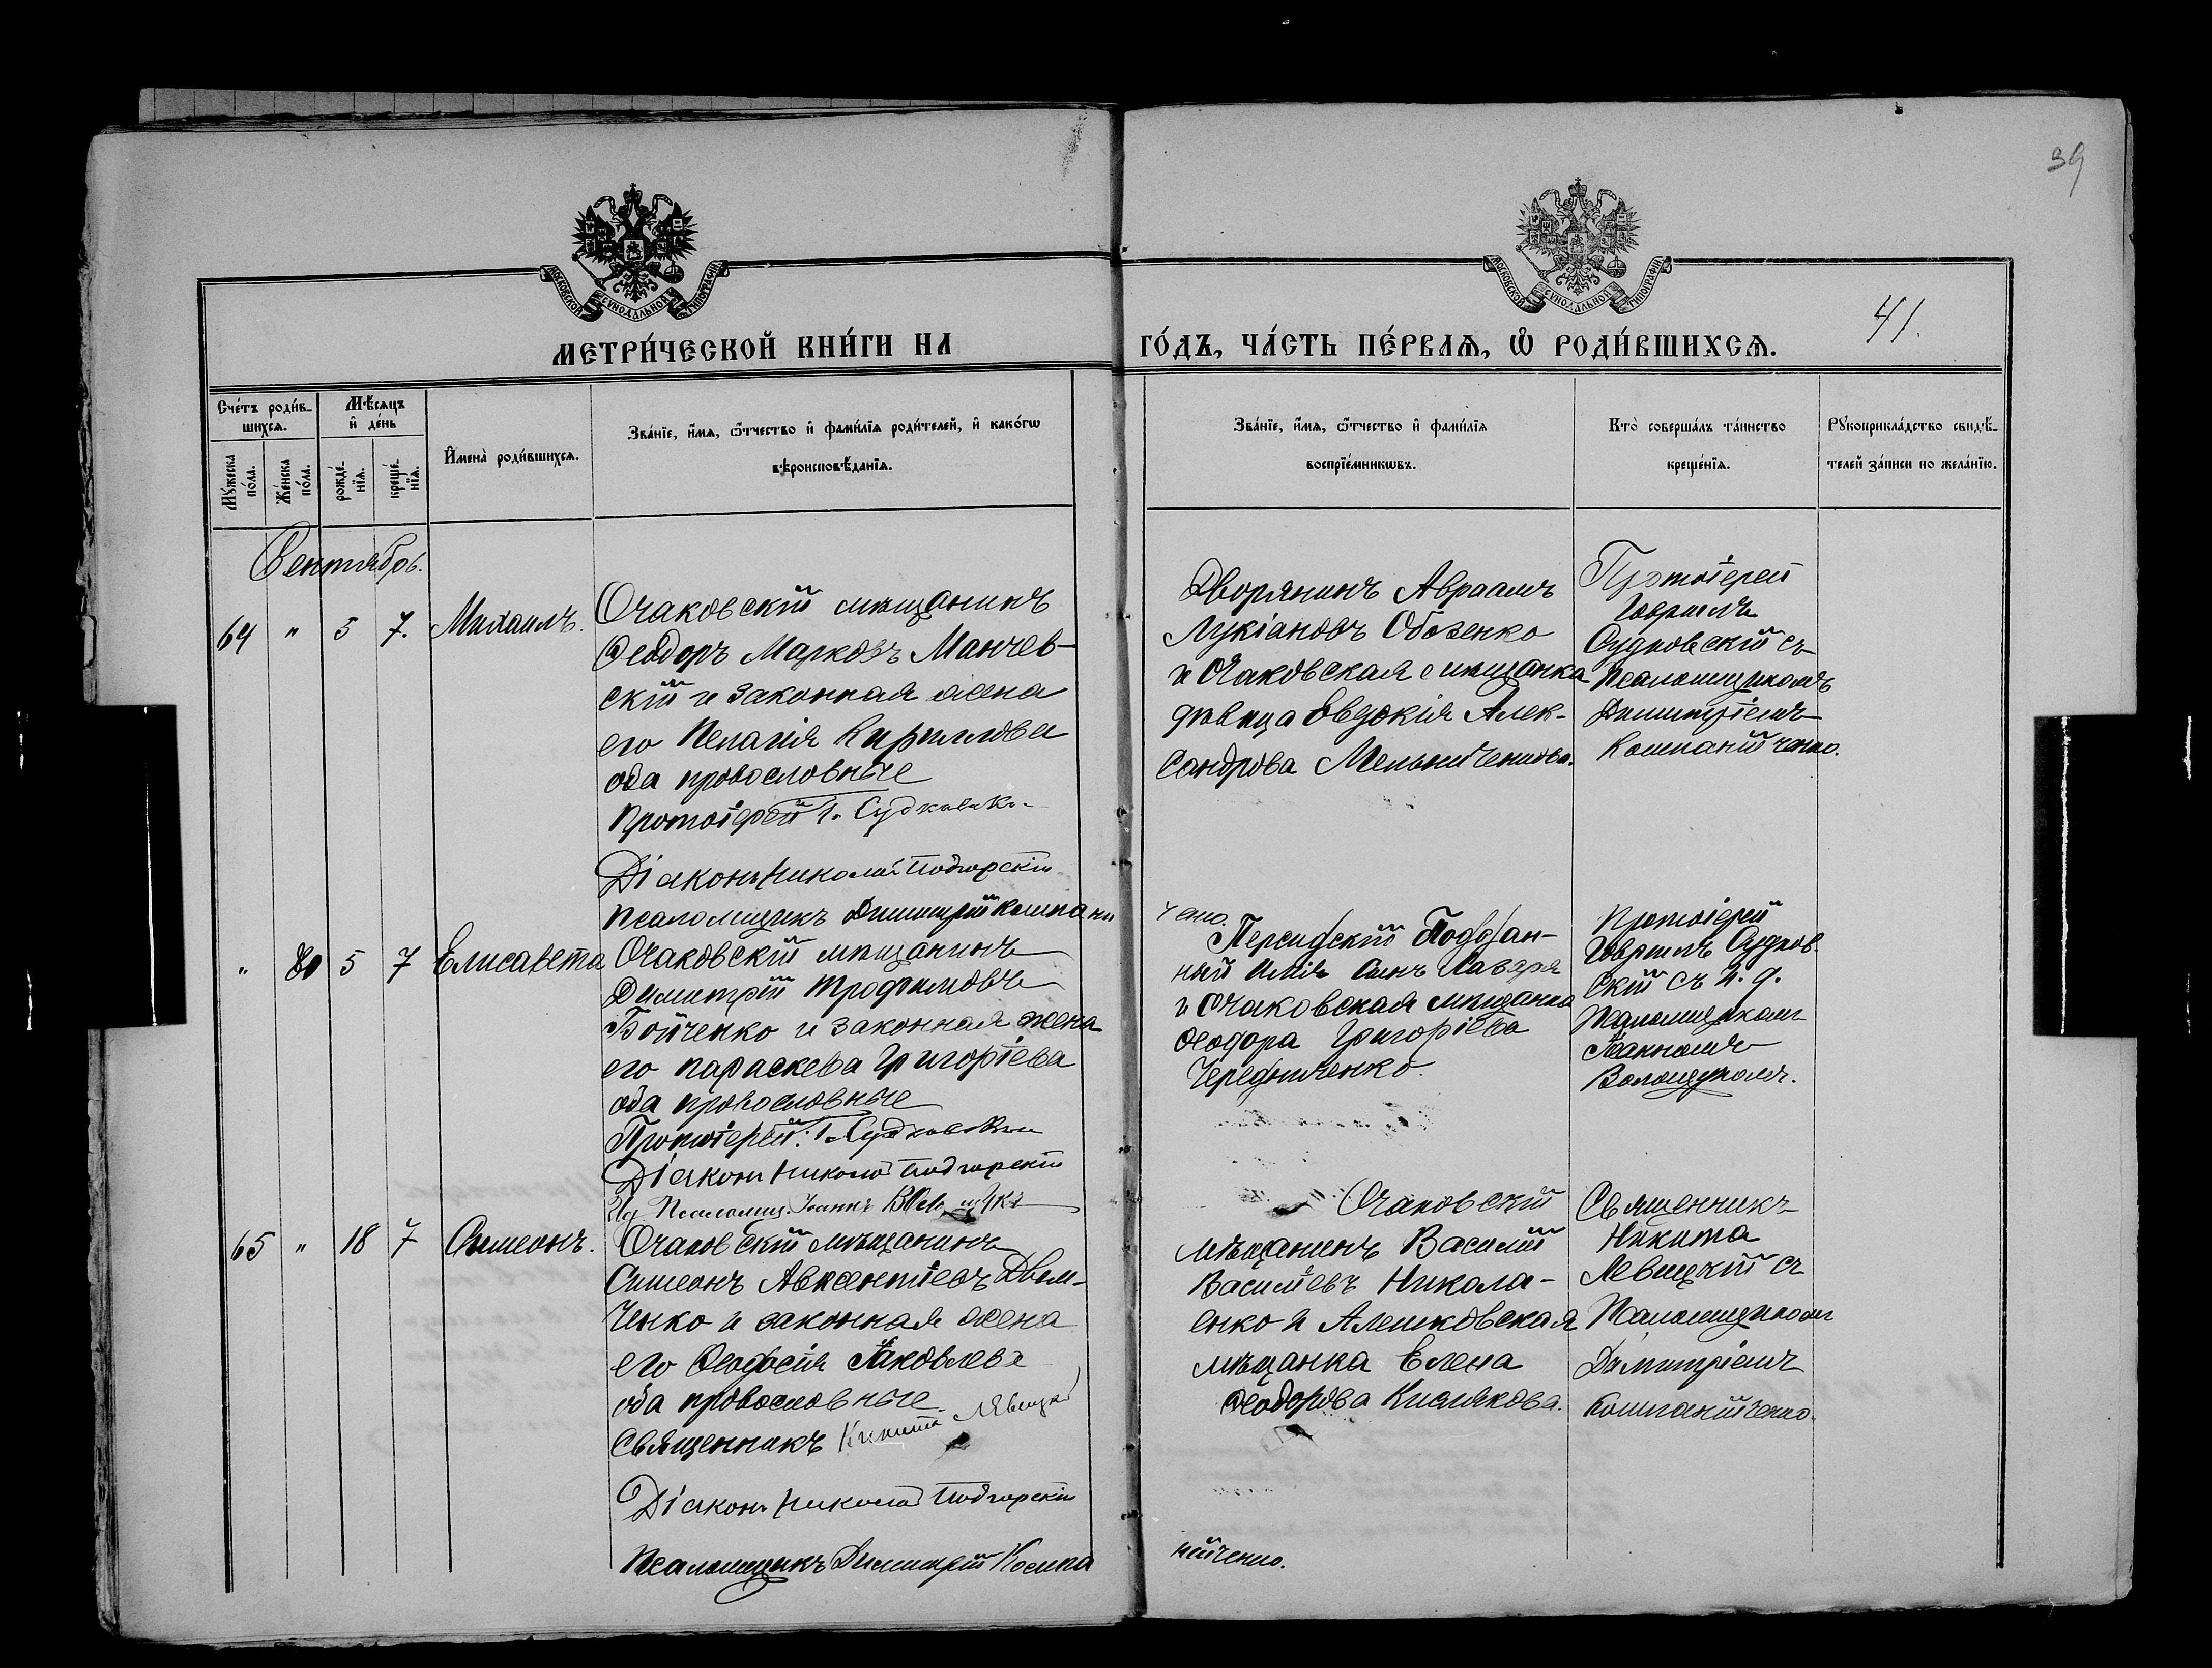 39
МОСКОВСКОЙ СѴНОДАЛЬНОЙ ТИПОГРАФІИ
МОСКОВСКОЙ СѴНОДАЛЬНОЙ ТИПОГРАФІИ
41.
МЕТРИ́ЧЕСКОЙ КНИ́ГИ НА
ГО́ДЪ, ЧА́СТЬ ПЕ́РВАѦ, Ѡ РОДИ́ВШИХСѦ.
Сче́тъ роди́в-
шихсѧ.
Мѣ́сѧцъ
и҆ де́нь
Мꙋ́жеска
по́ла.
Же́нска
по́ла.
рожде́-
нїѧ.
креще́-
нїѧ.
И҆мена̀ роди́вшихсѧ.
Зва́нїе, и҆́мѧ, ѻ҆́тчество и҆ фами́лїѧ роди́телей, и҆ како́гѡ
вѣроисповѣ́данїѧ.
Зва́нїе, и҆́мѧ, ѻ҆́тчество и҆ фами́лїѧ
воспрїе́мникѡвъ.
Кто̀ соверша́лъ та́инство
креще́нїѧ.
Рꙋкоприкла́дство свидѣ́-
телей за́писи по жела́нїю.
Сентябрь.
64 " 5 7. Михаилъ.
Очаковскій мѣщанинъ
Ѳеодоръ Марковъ Манчев-
скій и законная жена
его Пелагія Кириллова
оба православные
Протоіерей Г. Судковскі
Діаконъ Николай Подгорскій
Псаломщикъ Димитрій Компаній
Дворянинъ Авраамъ
Лукіановъ Обозенко
и Очаковская мѣщанка
дѣвица Евдокія Алек-
сандрова Мельниченкова.
Протоіерей
Гавріилъ
Судковскій съ
псаломщикомъ
Димитріемъ
Компанійченко.
ченко.
" 80 5 7 Елисавета
Очаковскій мѣщанинъ
Димитрій Трофимовъ
Бойченко и законная жена
его Параскева Григоріева
оба православные
Протоіерей: Г. Судковскій
Діаконъ Николай Подгорскій
Ид Псаломщ. Іоаннъ
Персидскій Поддан-
ный Илія Сынъ Лазаря
и Очаковская мѣщанка
Ѳеодора Григоріева
Чередниченко.
Протоіерей
Гавріилъ Судков-
скій съ и. д.
Псаломщикомъ
Іоанномъ
Волощукомъ.
65 " 18 7 Симеонъ.
Очаковскій мѣщанинъ
Симеонъ Авксентіевъ
ченко и законная жена
его Ѳеодосія Іаковлева
оба православные
Священникъ Никита Левицкій
Діаконъ Николай Подгорскій
Псаломщикъ Димитрій Компа
Очаковскій
мѣщанинъ Василій
Васильевъ Никола-
енко и Алешковская
мѣщанка Елена
Ѳеодорова Кислякова.
Священникъ
Никита
Левицкій съ
Псаломщикомъ
Димитріемъ
Компанійченко.
нійченко.